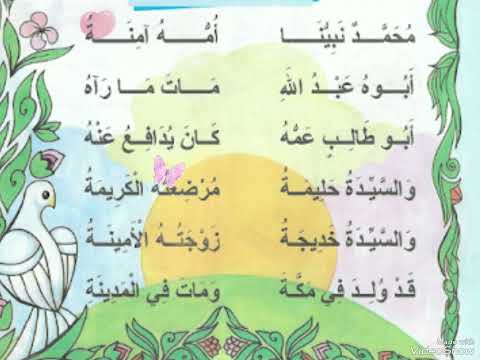 مُحَمَّدٌ نَبِيُّنَا أُمُّهُ آمِنَةُ
أَبُوهُ عَبْدُ اللهِ مَاتَ مَا رَآهُ
أَبُو طَالِبٍ عَمُّهُ كَانَ يُدَافِعُ عَنْهُ
وَالسَّيِّدَةُ حَلِيمَةُ مُرْضِعَتُهُ الْكَرِيمَةُ
وَالسَّيِّدَةُ خَدِيجَةُ زَوْجَتُهُ الْأَمِينَةُ
قَدْ وُلِدَ فِي مَكَّةَ وَمَاتَ فِي الْمَدِينَةِ
Made with
VideoShow